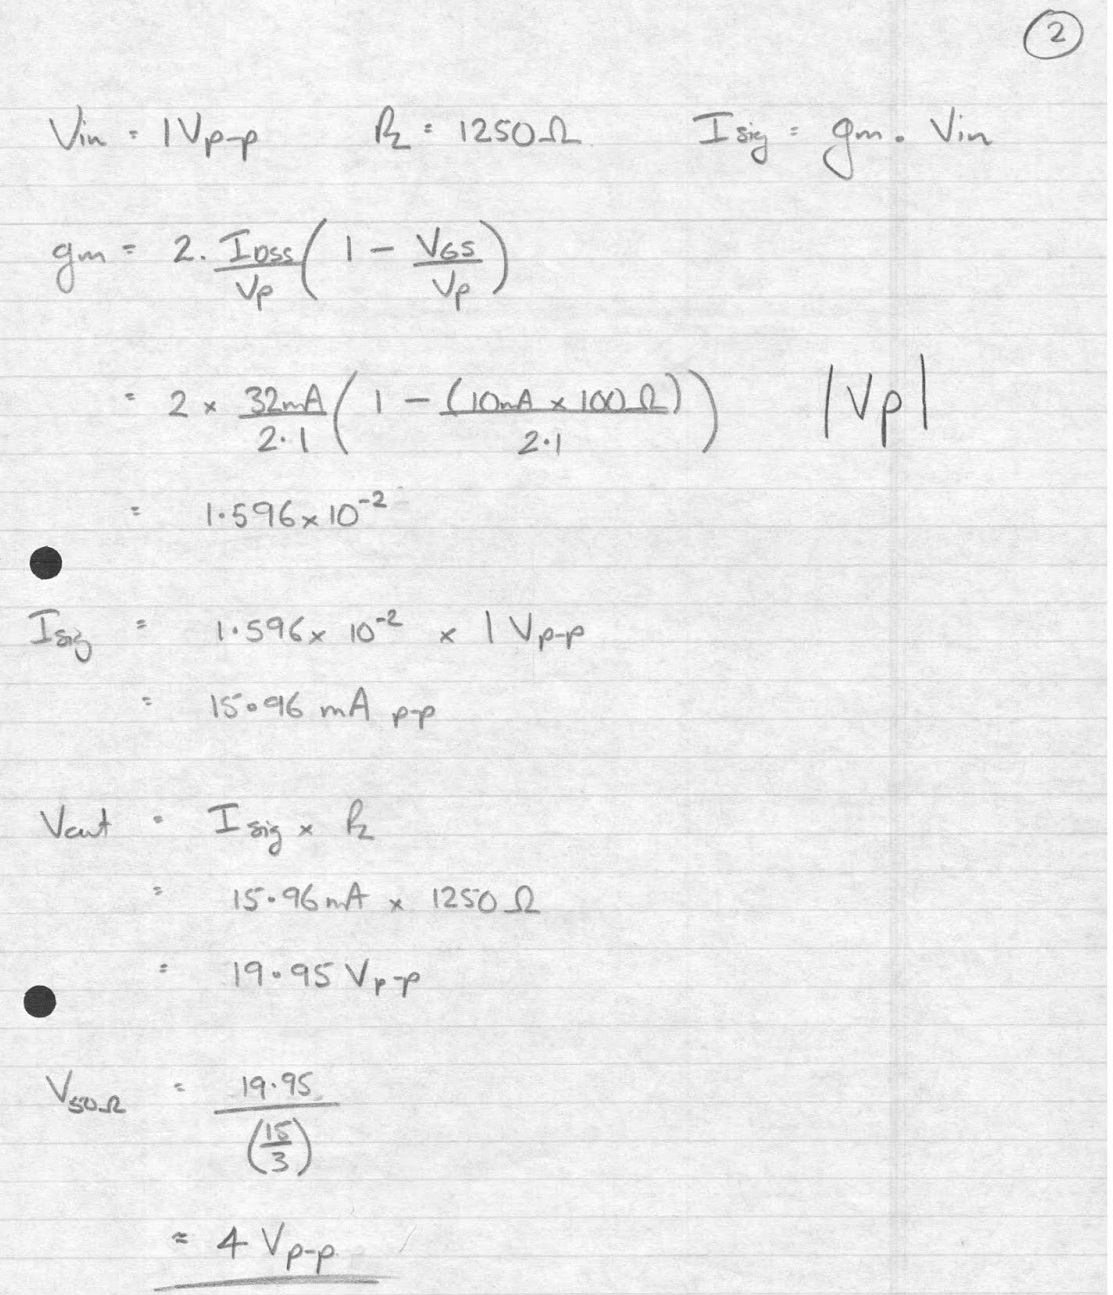 2
Vin = 1Vp-p RL = 1250Ω Isig = gm . Vin
gm = 2. IDSS/Vp ( 1 - VGS/Vp )
= 2 x 32mA/2.1 ( 1 - (10mA x 100Ω)/2.1 ) |Vp|
= 1.596 x 10^-2
Isig = 1.596 x 10^-2 x 1 Vp-p
= 15.96 mA p-p
Vout = Isig x RL
= 15.96mA x 1250Ω
= 19.95 Vp-p
V50Ω = 19.95/(15/3)
≈ 4 Vp-p